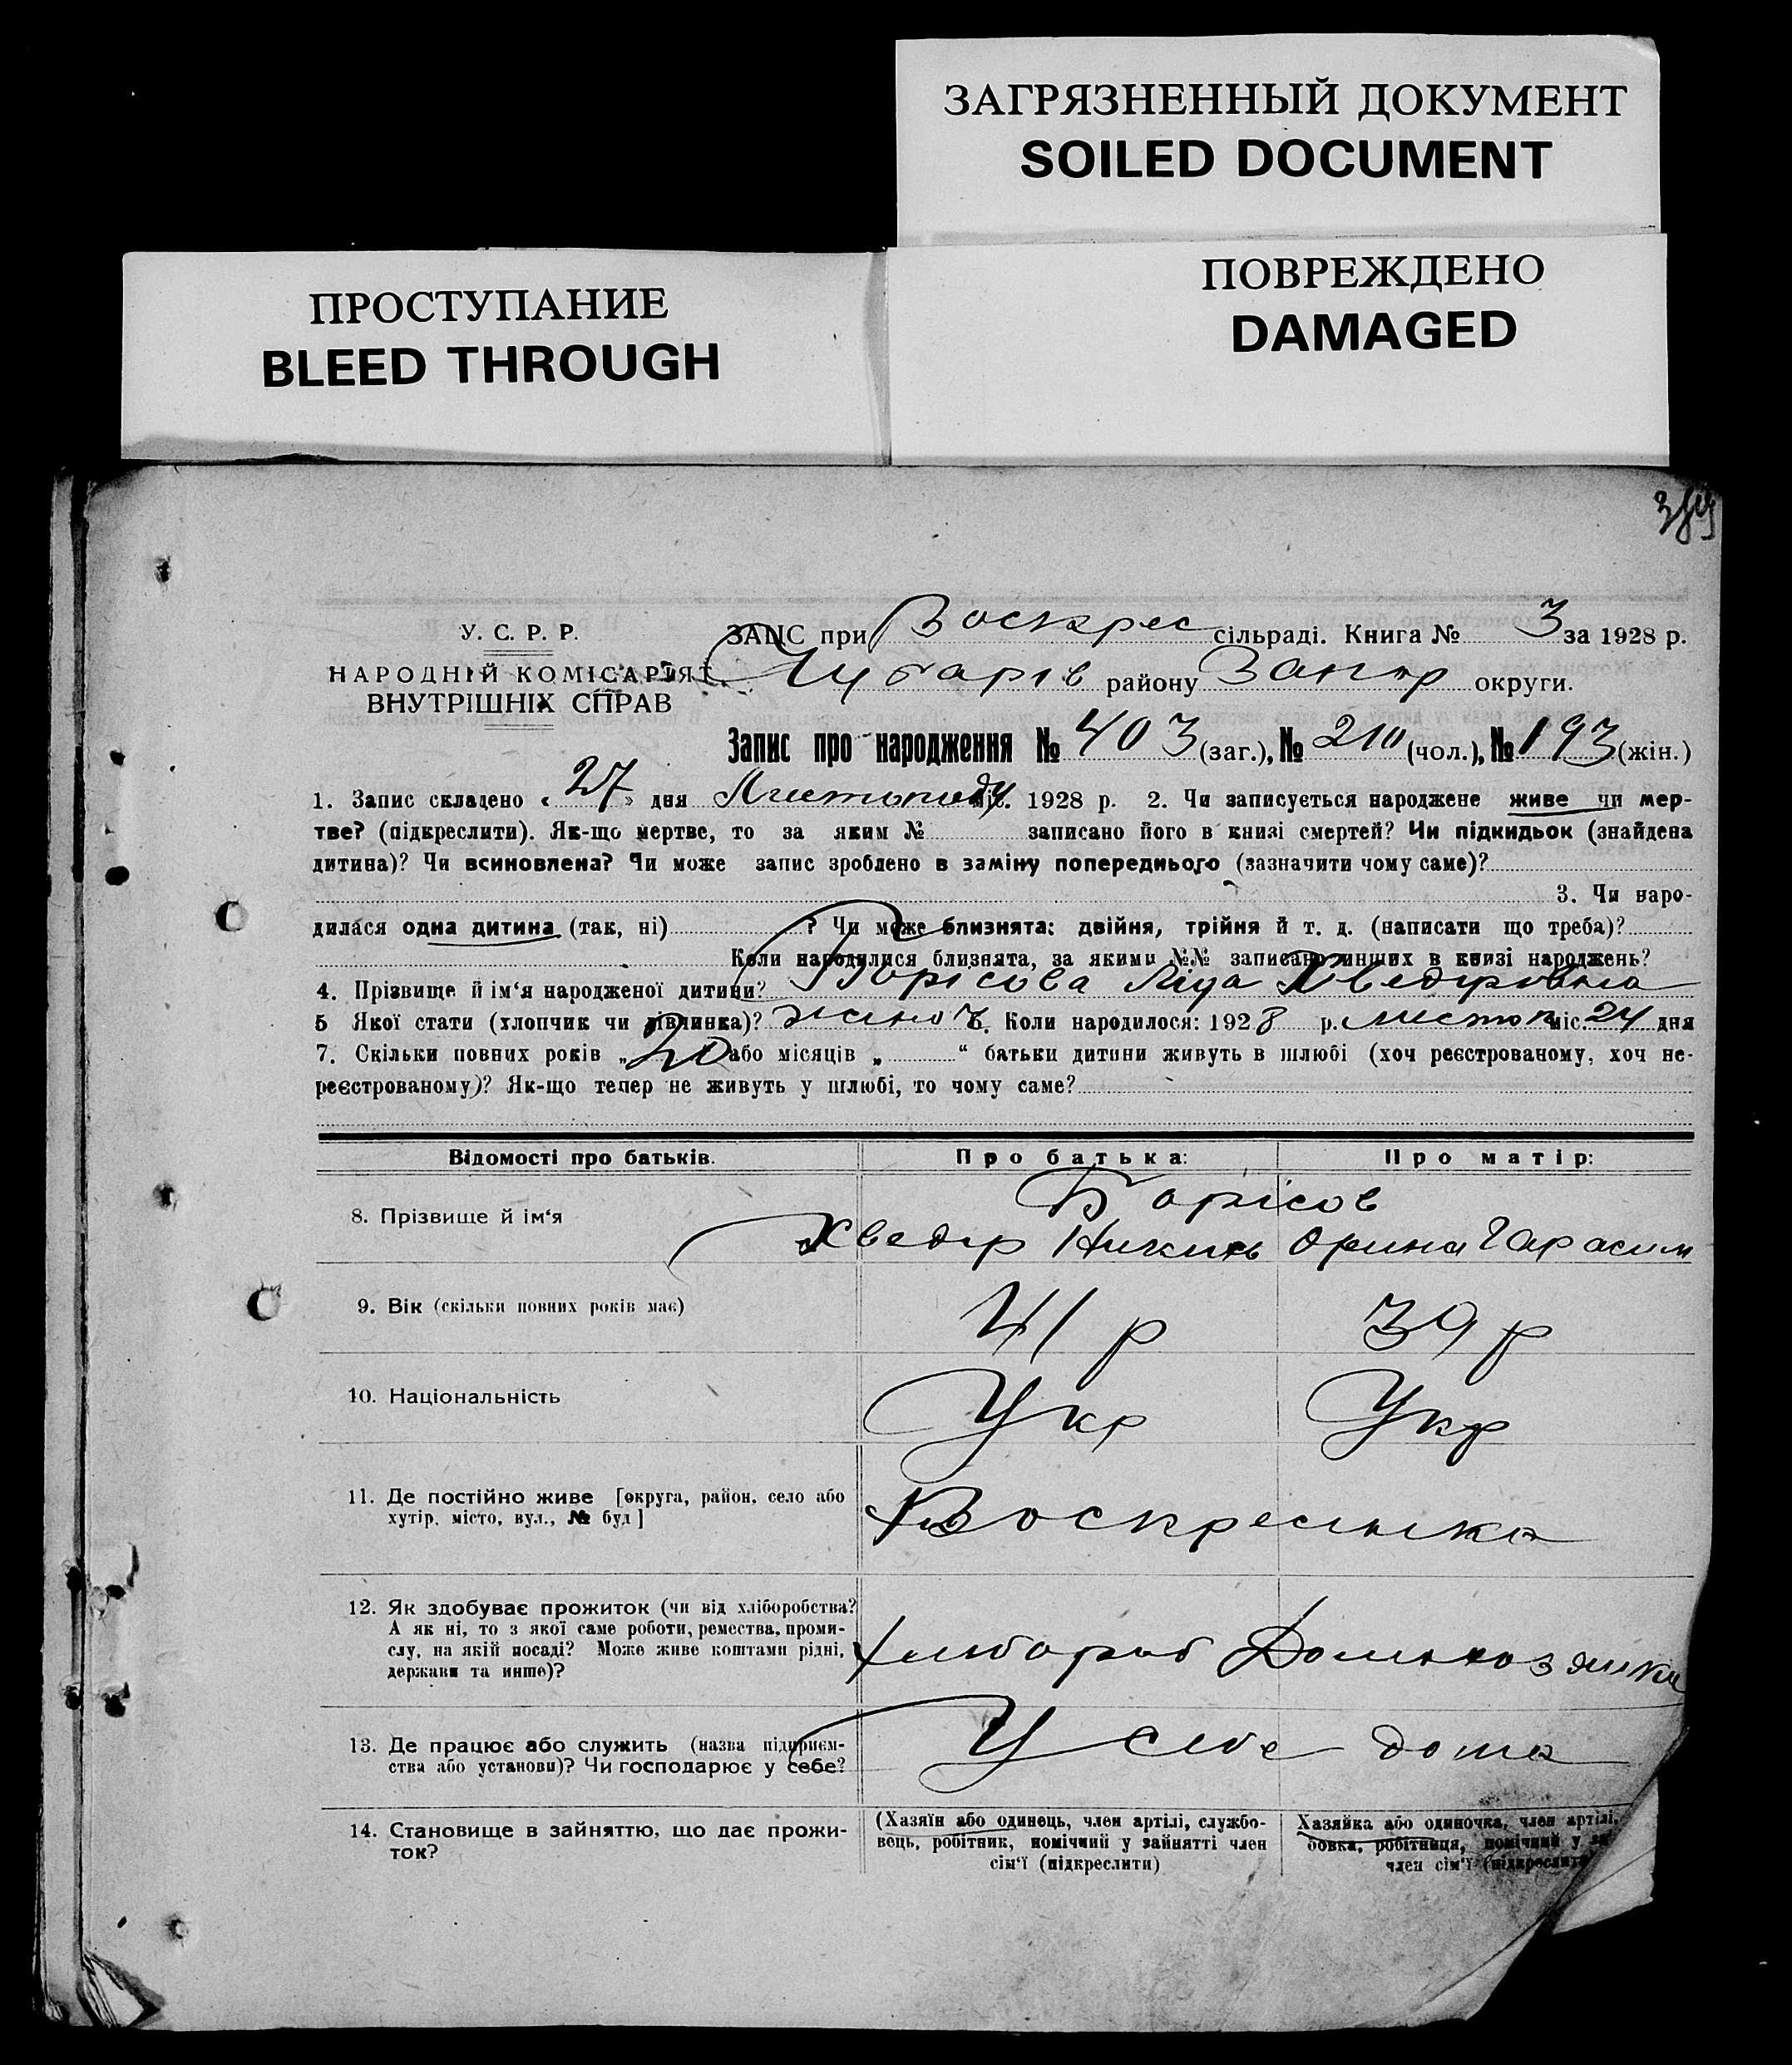 ЗАГРЯЗНЕННЫЙ ДОКУМЕНТ
SOILED DOCUMENT
ПОВРЕЖДЕНО
DAMAGED
ПРОСТУПАНИЕ
BLEED THROUGH
У. С. Р. Р.
НАРОДНІЙ КОМІСАРІЯТ
ВНУТРІШНІХ СПРАВ
ЗАЦС при Воскрес сільраді. Книга № 3 за 1928 р.
Чубарів району Запор округи.
Запис про народження № 403 (заг.), № 210 (чол.), № 193 (жін.)
1. Запис складено « 27 » дня Листопаду міс. 1928 р. 2. Чи записується народжене живе чи мер-
тве? (підкреслити). Як-що мертве, то за яким № записано його в книзі смертей? Чи підкидьок (знайдена
дитина)? Чи всиновлена? Чи може запис зроблено в заміну попереднього (зазначити чому саме)?
3. Чи наро-
дилася одна дитина (так, ні) ? Чи може близнята: двійня, трійня й т. д. (написати що треба)?
Коли народилися близнята, за якими №№ записано инших в книзі народжень?
4. Прізвище й ім'я народженої дитини? Борісова Ліда Хведировна
5 Якої стати (хлопчик чи дівчинка)? жіноч 6. Коли народилося: 1928 р. листоп міс. 24 дня
7. Скільки повних років „ 20 або місяців „ “ батьки дитини живуть в шлюбі (хоч реєстрованому, хоч не-
реєстрованому)? Як-що тепер не живуть у шлюбі, то чому саме?
Відомості про батьків. Про батька: Про матір:
Борісов
8. Прізвище й ім'я
Хведир Никиф Орина Гарасим
9. Вік (скільки повних років має) 41 р 39 р
10. Національність Укр Укр
11. Де постійно живе [округа, район, село або
хутір, місто, вул., № буд] Воскресенка
12. Як здобуває прожиток (чи від хліборобства?
А як ні, то з якої саме роботи, ремества, проми-
слу, на якій посаді? Може живе коштами рідні,
держави та инше)? Хлібороб Домохозяйка
13. Де працює або служить (назва підприєм-
ства або установи)? Чи господарює у себе? У себе дома
14. Становище в зайняттю, що дає прожи-
ток?
(Хазяїн або одинець, член артілі, службо-
вець, робітник, помічний у зайнятті член
сім'ї (підкреслити)
Хазяйка або одиночка, член артілі,
бовка, робітниця, помічний у за
член сім'ї (підкреслити